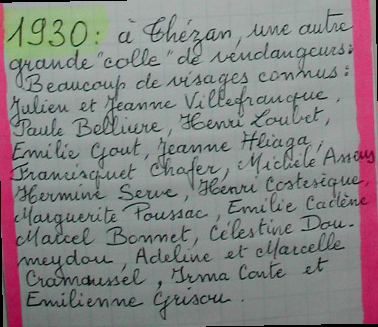 1930: à Thézan, une autre
grande "colle" de vendangeurs:
Beaucoup de visages connus:
Julien et Jeanne Villefranque,
Paule Belliure, Henri Loubet,
Emilie Gout, Jeanne Aliaga,
Francisquet Chafer, Michèle Assens
Hermine Serve, Henri Costesèque,
Marguerite Poussac, Emilie Cadène
Marcel Bonnet, Célestine Dou-
meydou, Adeline et Marcelle
Cramaussel, Irma Conte et
Emilienne Grisou.